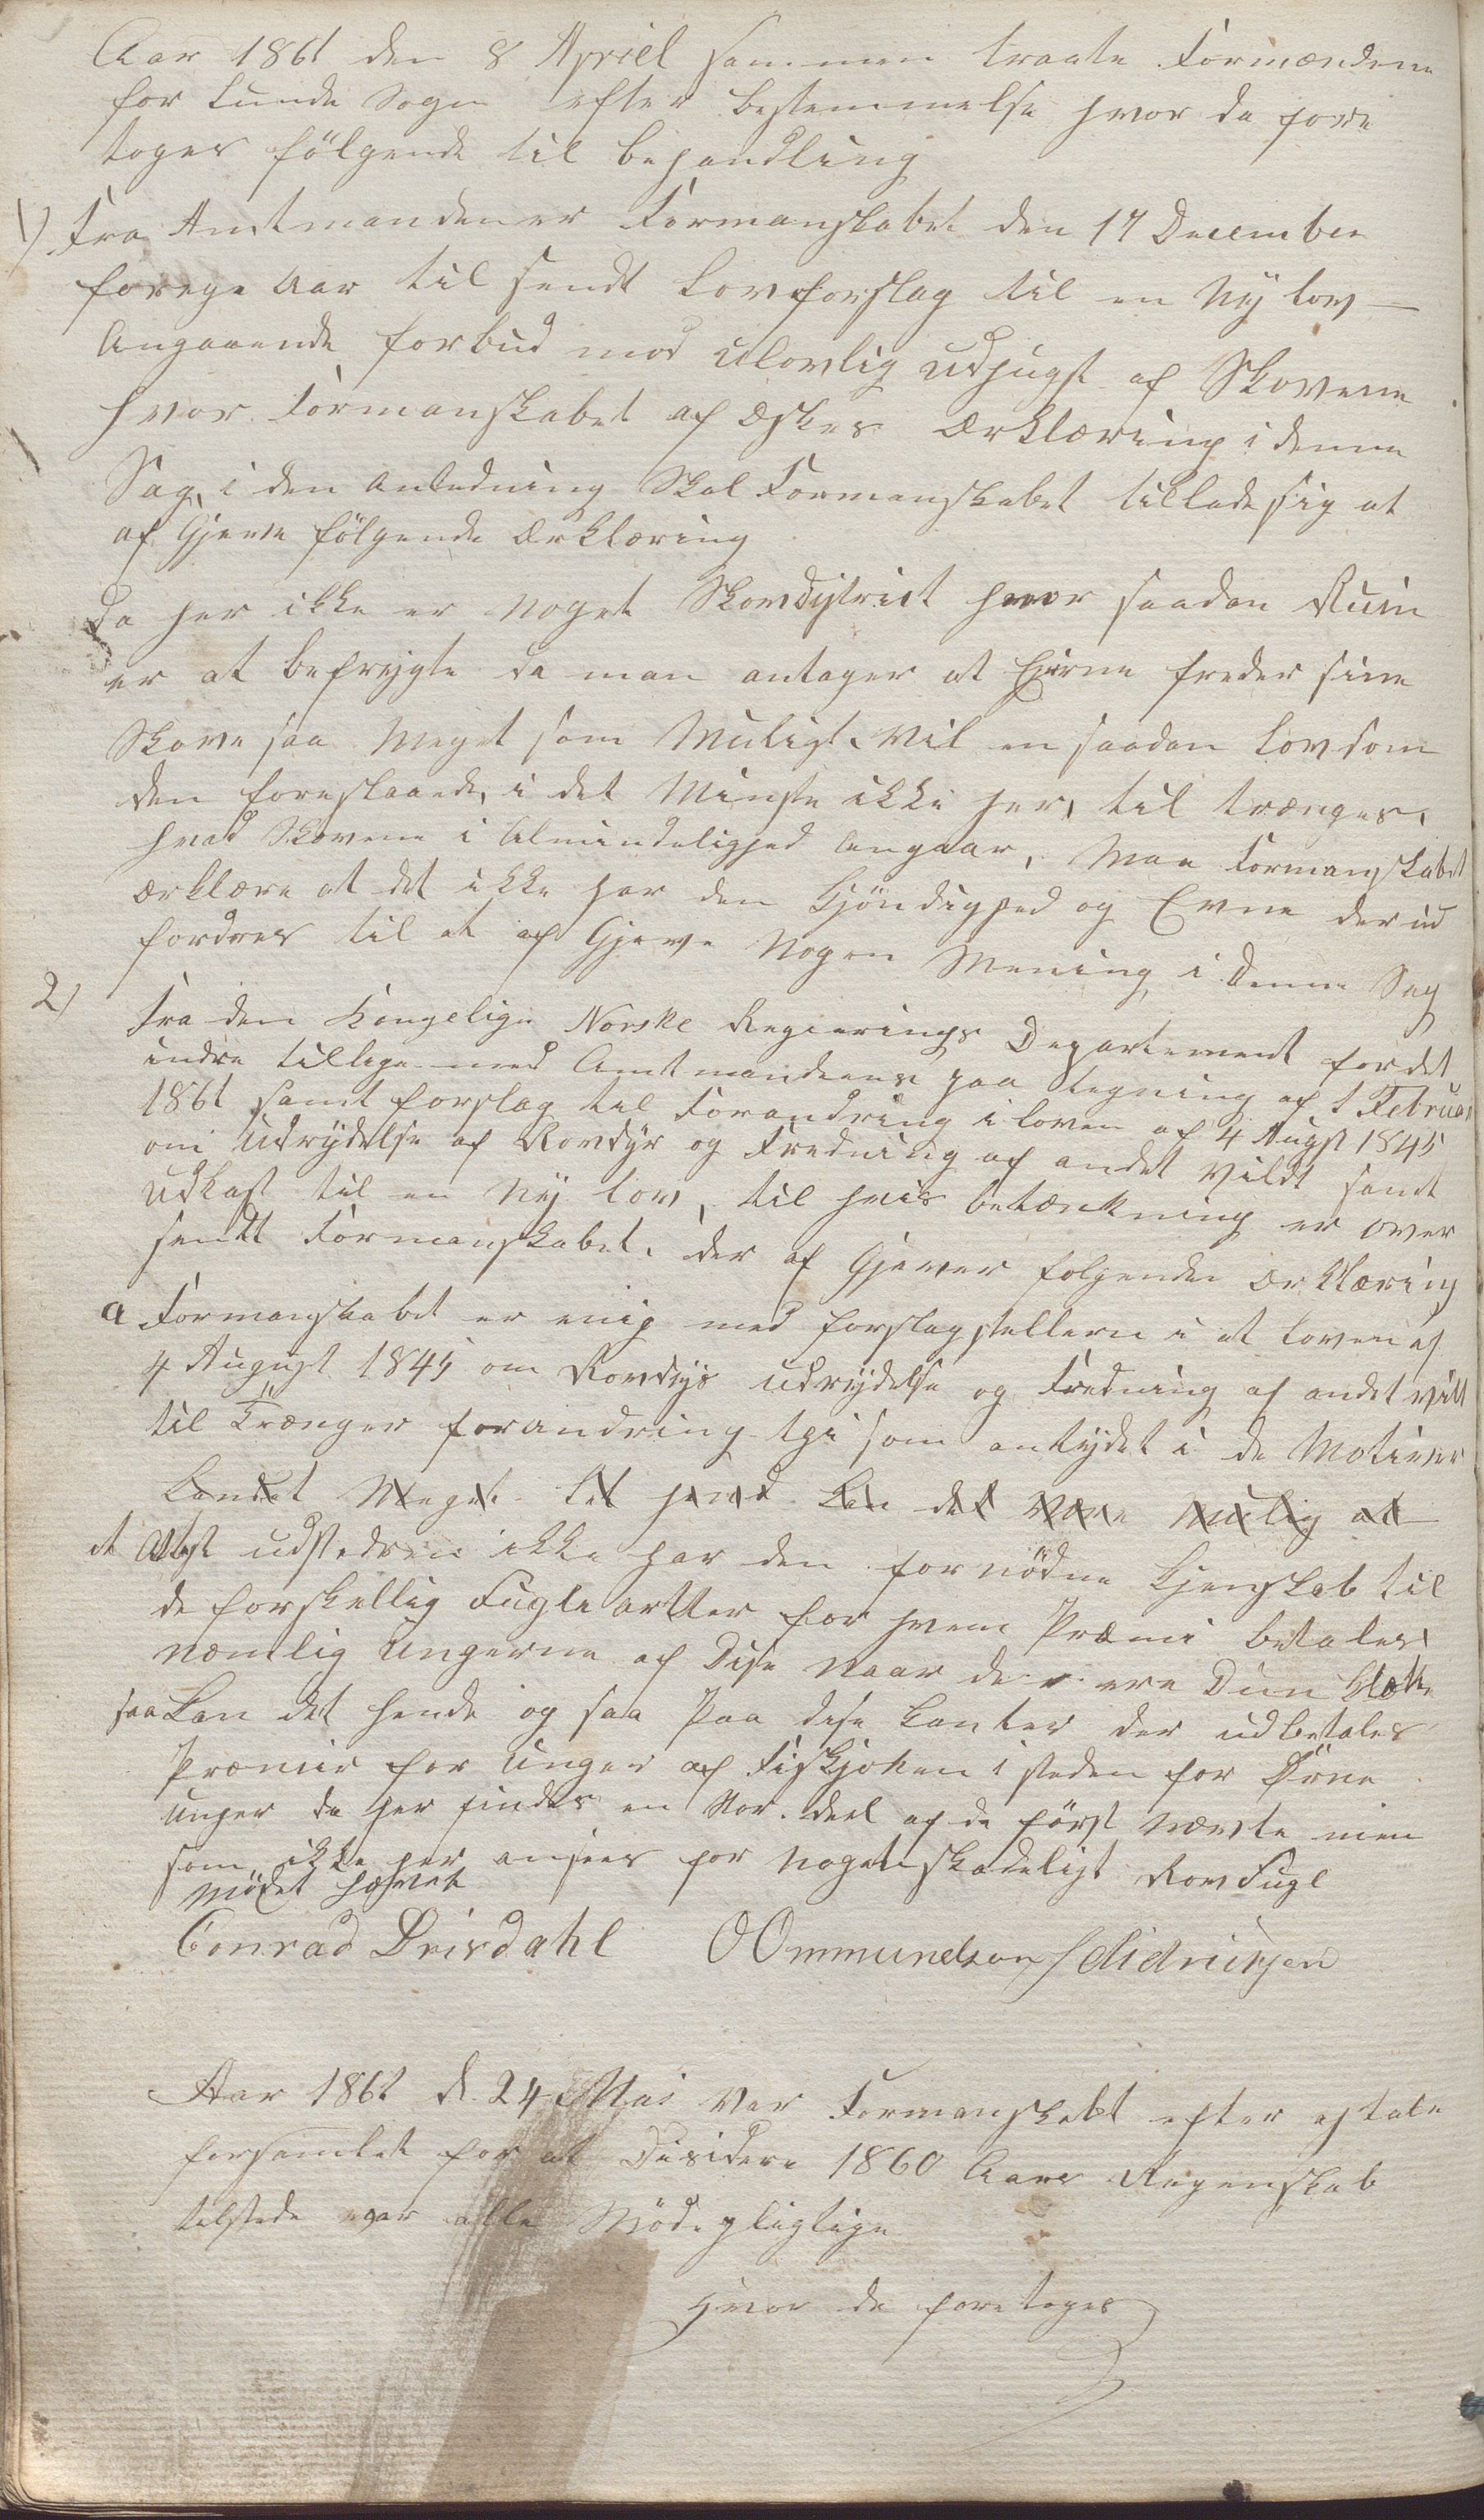 Aar 1861 den 8 Apriel sammen traate Formændene
for Lunde Sogn efter bestemmelse hvor da fore
toges følgende til behandling
1) Fra Amtmanden er Formanskabet den 17 December
forege Aar til sendt Lovforslag til en Ny lov
Angaaende forbud mod ulovlig udhugst af Skovene
hvor Formanskabet af Æskes Ærklæring i denne
Sag, i den Anledning Skal Formanskabet tillade sig at
af Gjeve følgende Ærklæring
Da her ikke er noget Skovdistrict hvor saadan Ruin
er at befrygte da man antager at Eierne freder sine
Skove saa Meget som Muligt. Vil en saadan Lov som
den foreslaaede, i det Minste ikke her, til trænges,
hvad Skovene i Almindelighed Angaar, Maa Formanskabet
ærklære at det ikke har den Kjøndighed og Evne der ud
fordres til at af Gjeve Nogen Mening i denne Sag
2) Fra den Kongelige Norske Regierings Departement for det
indre tillige med Amtmandens paa tegning af 1 Februar
1861 samt forslag til Forandring i loven af 4 Augst 1845
om Udrydelse af Rovdyr og Fredning af andet Vildt samt
udkast til en Ny lov, til hvis betænkning er over
sendt Formanskabet. der af Gjever folgende Ærklæring
a Formanskabet er enig med forslagstilleren i at loven af
4 August 1845 om Rovdys udrydelse og Fredning af andet vilt
til Trænger forandring thi som antydet i de Motiver
Landet Meget let hend kan det være Mulig at
at Atest udstederen ikke har den fornødne Kjenskab til
de forskellig Fugle artter for hvem Præmi betales
nemlig Ungerne af Dise naar de ere Dun klætte
saa kan det hende og saa Paa dise kanter der udbetales
Præmie for Unger af Fiskjoen i steden for Ørne
unger da her findes en Stor deel af de først nævnte men
som ikke her ansees for noget skadeligt Rov Fugl
Mødet hævet
Conrad Drisdahl OOmmundsen S Didriksen
Aar 1861 d. 24 Mai var Formanskabet efter aftale
forsamlet for at Disidere 1860 Aars Regenskab
tilstede var alle Mødepligtige
Hvor da foretoges